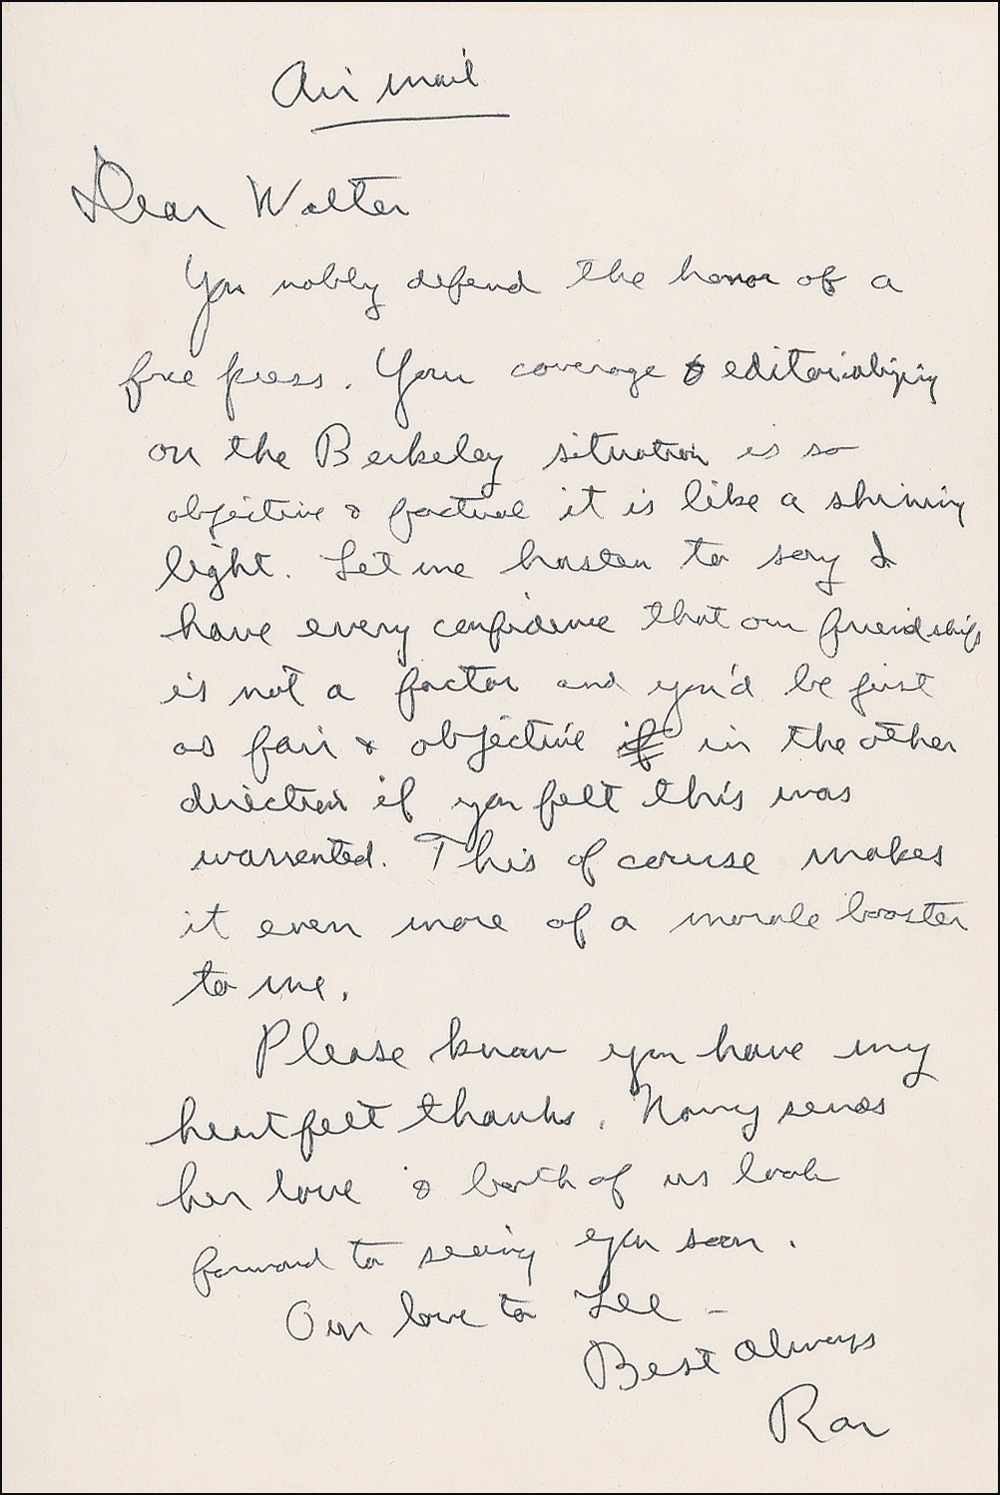 Air mail
Dear Walter
You nobly defend the honor of a
free press. Your coverage & editorializing
on the Berkeley situation is so
objective & factual it is like a shining
light. Let me hasten to say I
have every confidence that our friendship
is not a factor and you'd be just
as fair & objective if in the other
direction if you felt this was
warrented. This of course makes
it even more of a morale booster
to me.
Please know you have my
heartfelt thanks. Nancy sends
her love & both of us look
forward to seeing you soon.
Our love to Lee -
Best Always
Ron